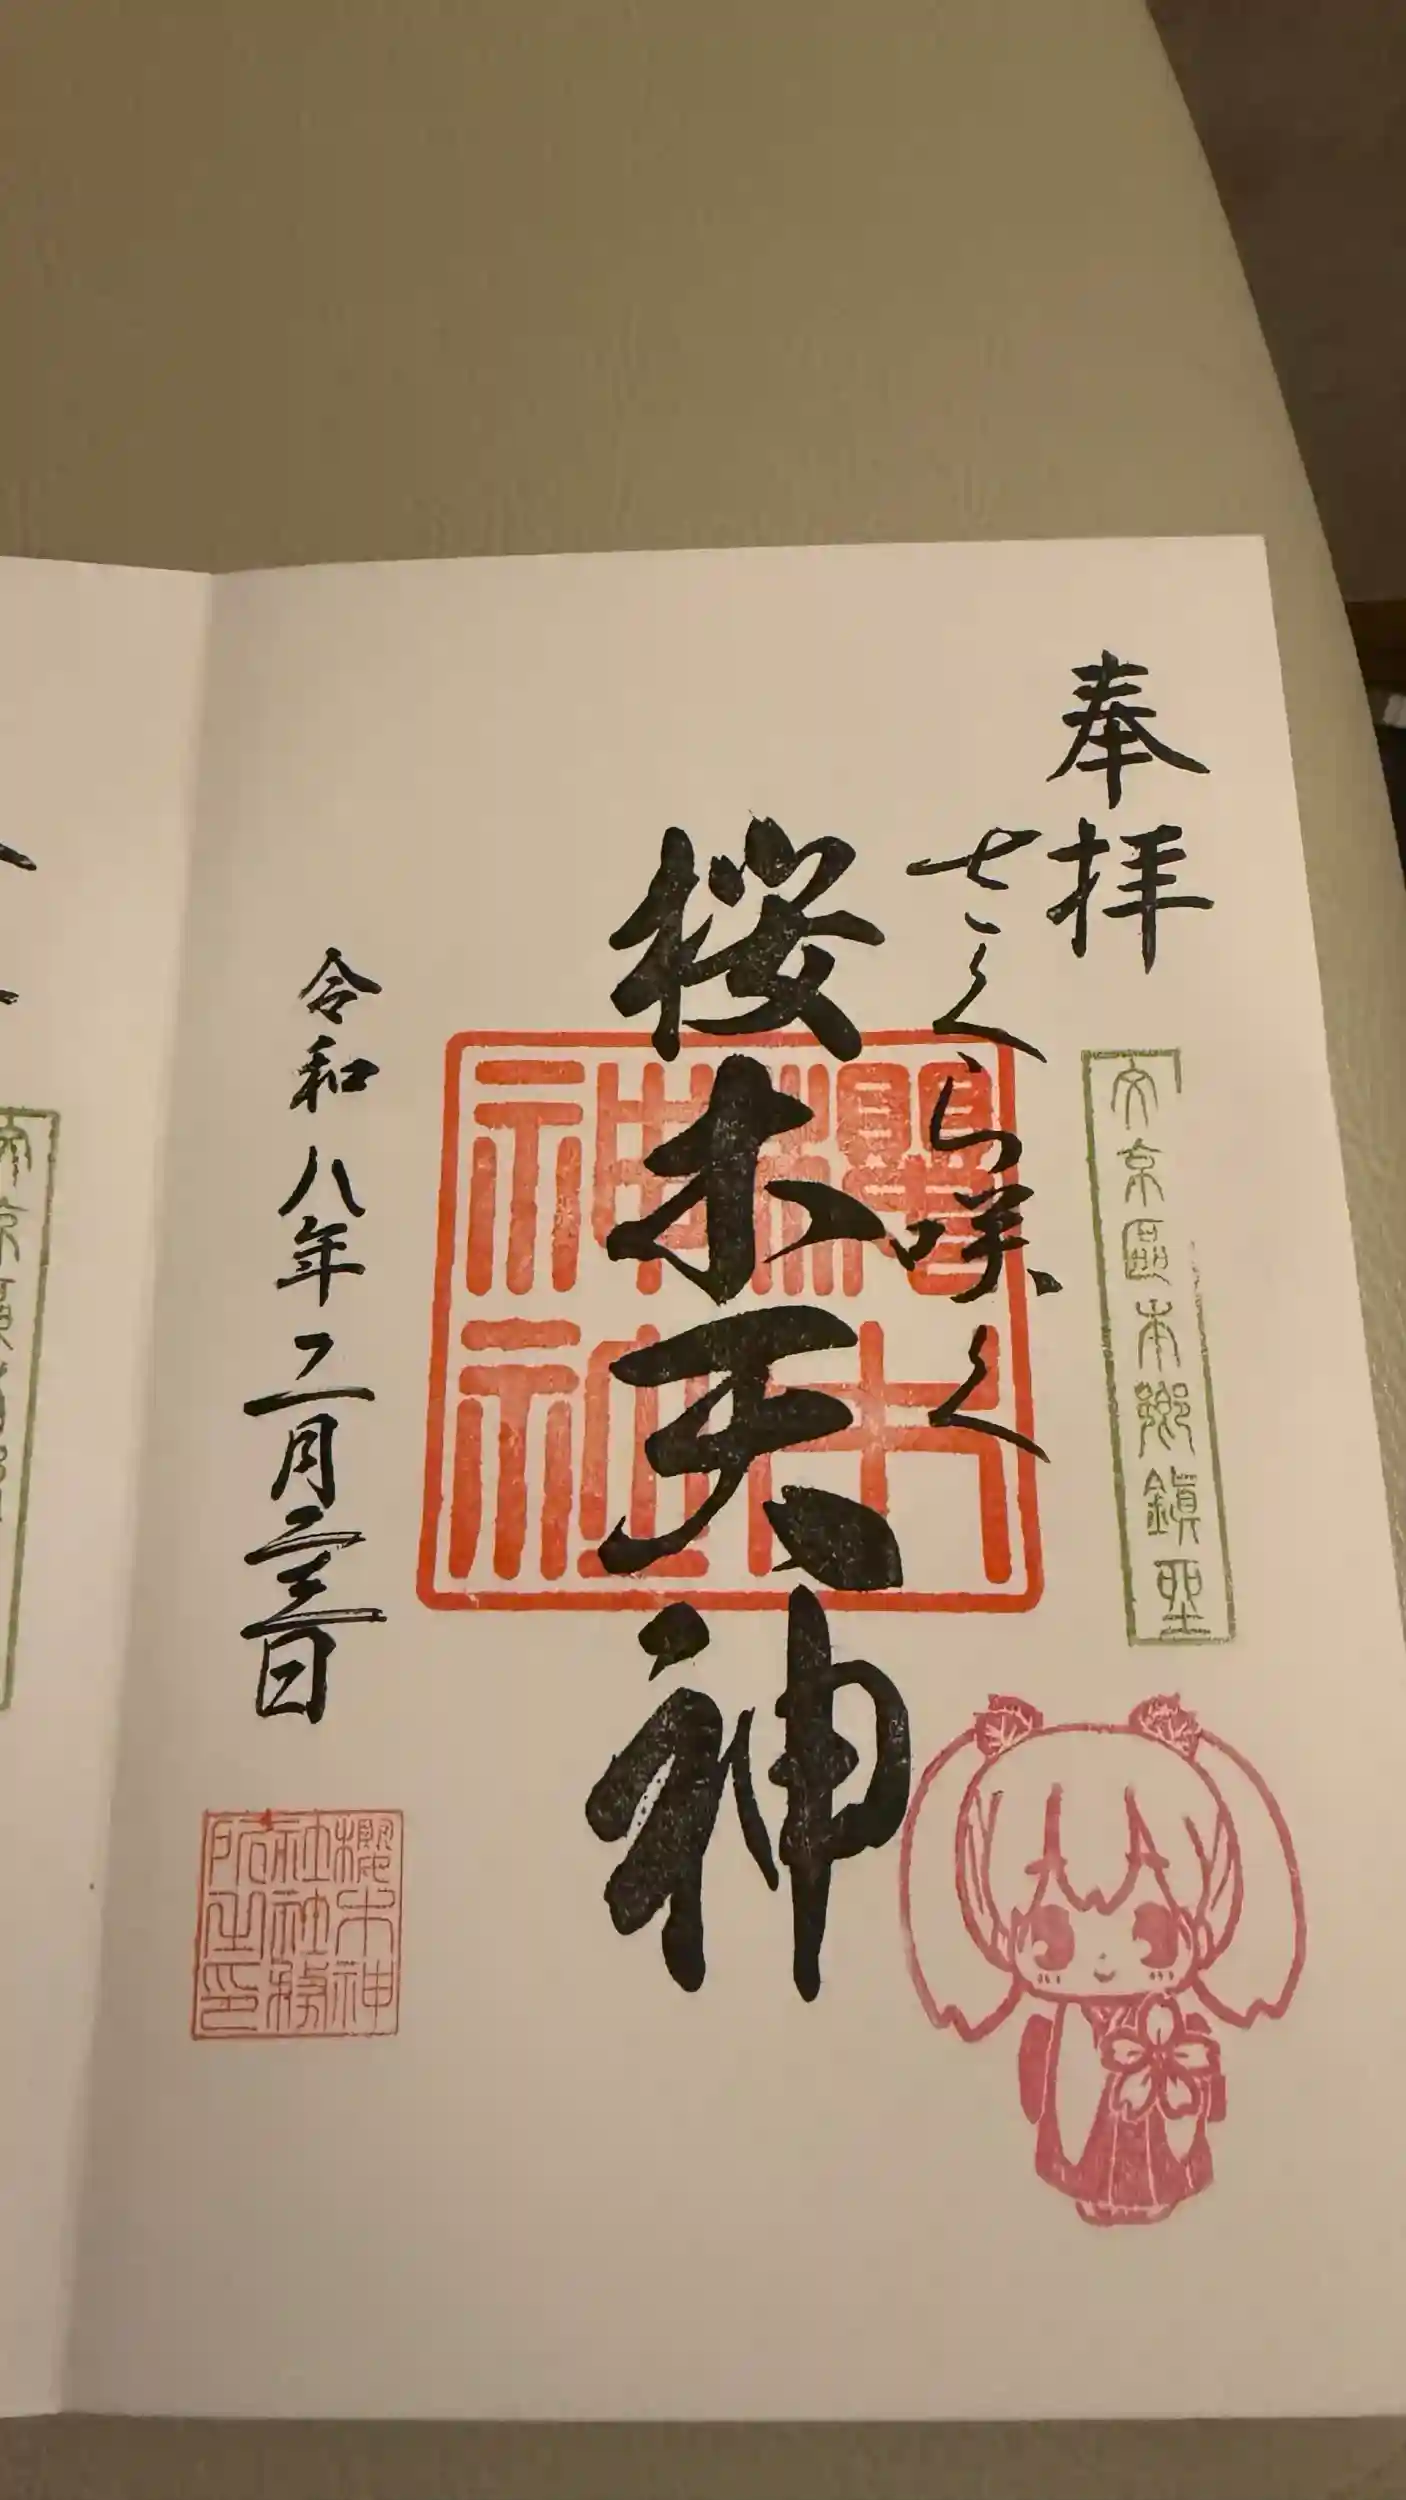 奉拝
文京區本郷鎮聖
さくら咲く
桜木天神
櫻木神社
令和八年二月二三日
櫻木神社社務所之印